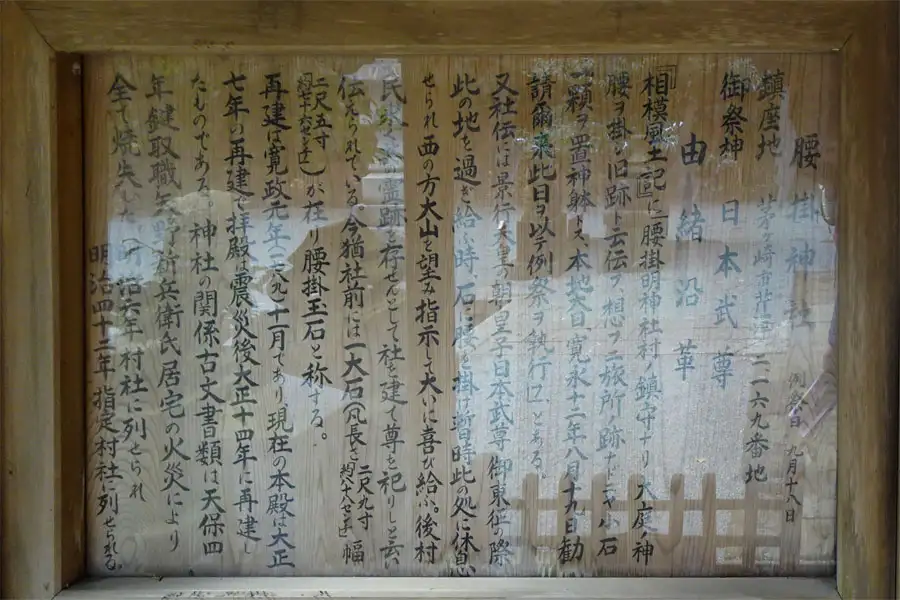 腰掛神社 例祭日 九月十八日
鎮座地 茅ヶ崎市芹沢 二一六九番地
御祭神 日本武尊
由緒沿革
『相模風土記』に「腰掛明神社村ノ鎮守ナリ 大庭ノ神
腰ヲ掛シ旧跡ト云伝フ想フニ旅所ノ跡ナドニヤ小石
一顆ヲ置神躰トス、本地大日寛永十二年八月十九日勧
請爾来此日ヲ以テ例祭ヲ執行フ」とある、
又社伝には景行天皇の朝皇子日本武尊御東征の際
此の地を過ぎ給ふ時 石に腰を掛け暫時此の処に休息
せられ西の方大山を望み指示して大いに喜び給ふ。後村
民永く霊跡を存せんとして社を建て尊を祀りしと云い
伝えられている。今猶社前には一大石(凡長さ二尺九寸 幅
二尺五寸)が在り腰掛玉石と称する。
再建は寛政元年 十一月であり現在の本殿は大正
七年の再建で拝殿は震災後大正十四年に再建し
たものである。神社の関係古文書類は天保四
年 鍵取職矢野新兵衛氏居宅の火災により
全て焼失した。明治六年 村社に列せられ
明治四十二年 指定村社に列せられる。